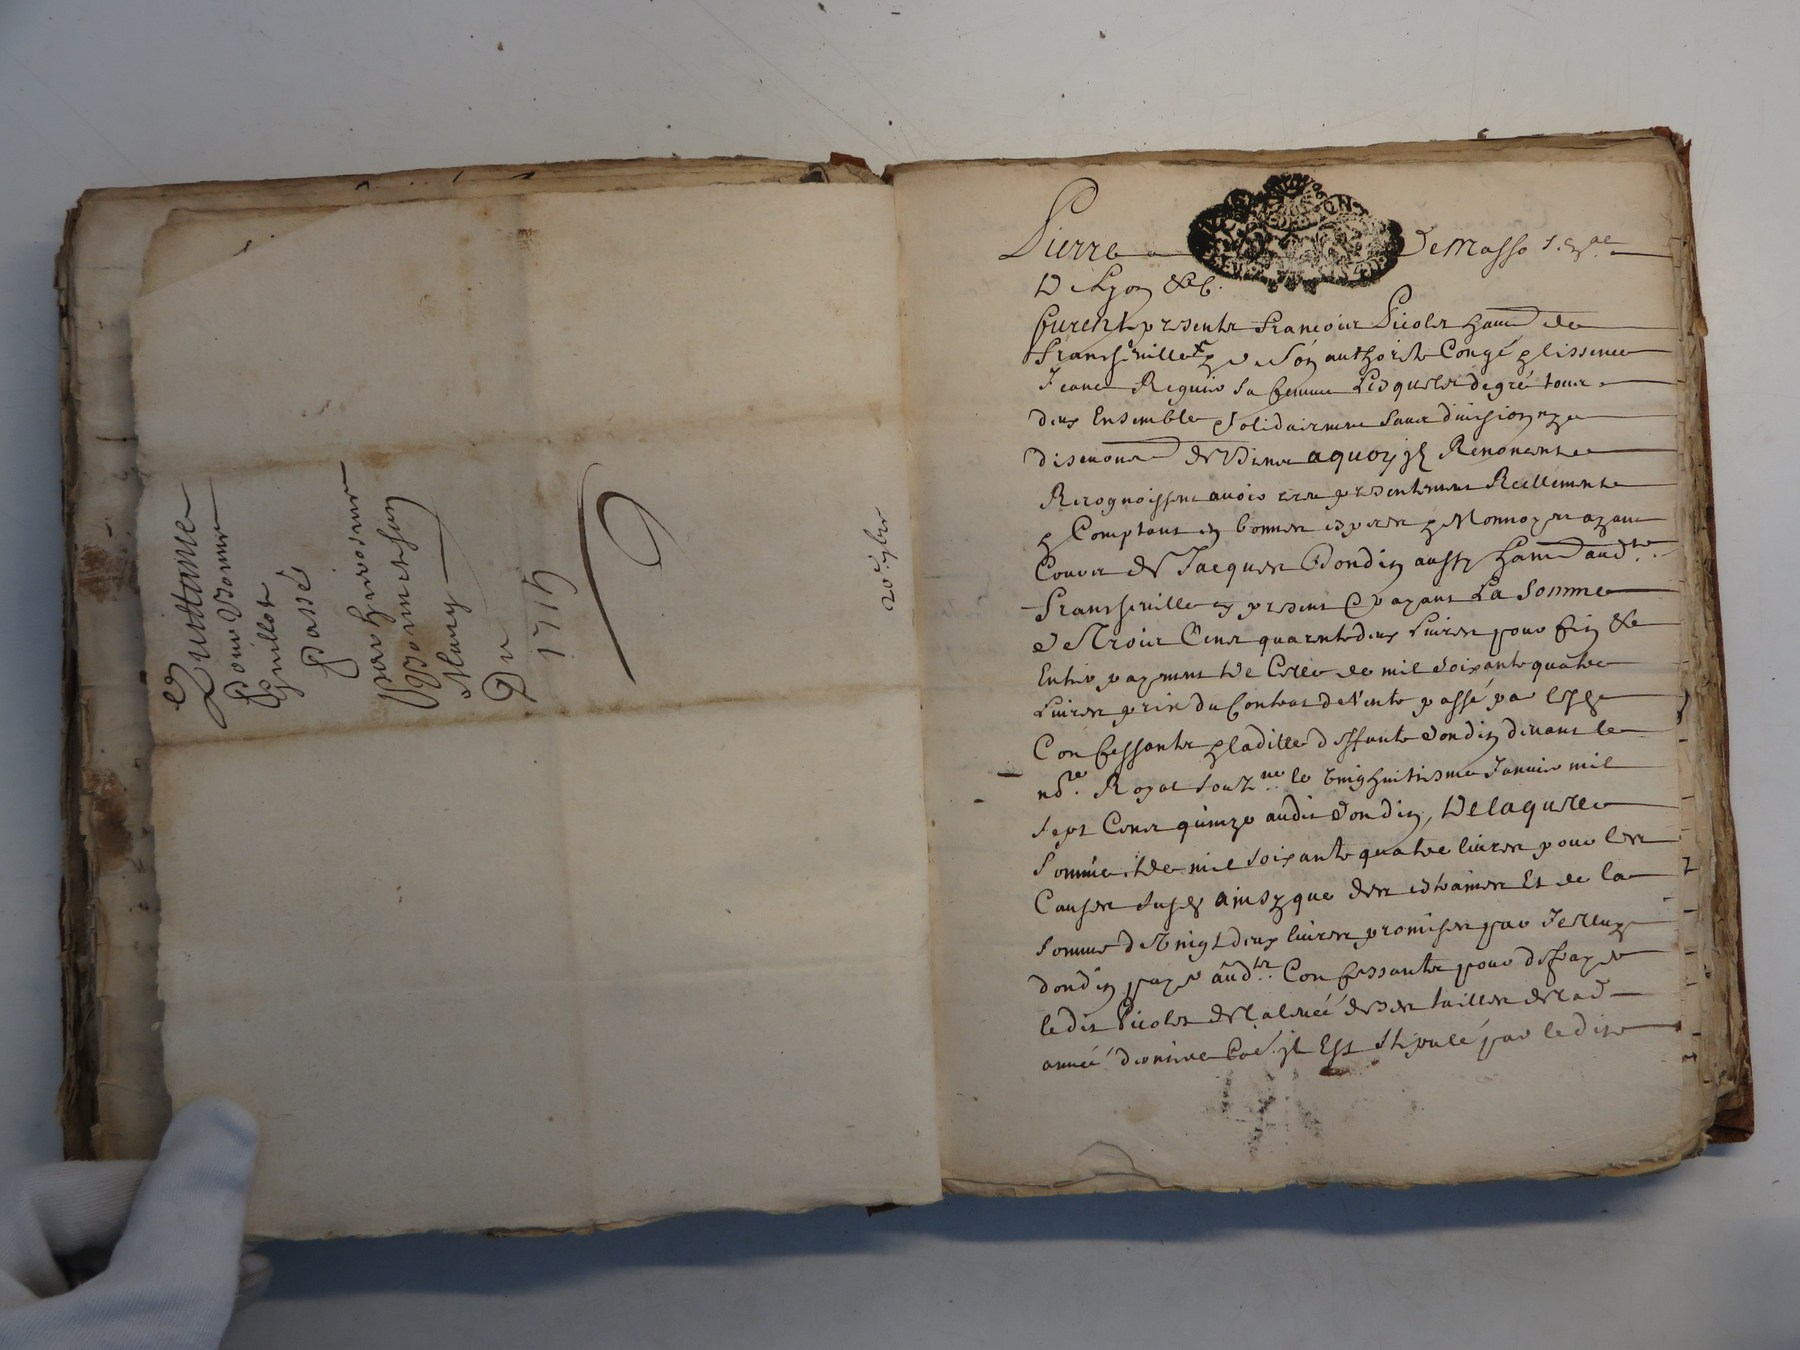 Quittance
pour Bonne
Guillot
Passé
par hierosme
Mury
Du
1715
20e 9bre
Pierre Demasso
De Lyon &c.
furent presents francois Picolet de
franchevillex & de son authorité Congé & lissence
Jeanne sa femme Lesquels de gré tous
deux Ensemble & solidairement sans division ny
discution de biens aquoy jls Renoncent
Recognoissent avoir receu presentement Reellement
& Comptant en bonnes especes & Monnoye ayant
Cours de Jacques Dondin aussy
francheville cy present & payant La Somme
de Trois Cens quarante deux Livres pour fin &
Entier payement De Celle de mil soixante quatre
Livres prix du Contrat de Vente passé par lesd
Confessants & laditte deffunte dondin devant le
nore Royal souzne le vingt huitiesme Janvier mil
sept Cens quinze audit dondin, De laquelle
Somme De mil soixante quatre livres pour les
Causes susd ainsy que des estraines Et de la
somme de Vingt deux livres promises par Icelluy
dondin payer audts Confessants pour deffrayer
ledit Picolet de la levée des tailles de lad
année derniere jl Est stipulé par ledit